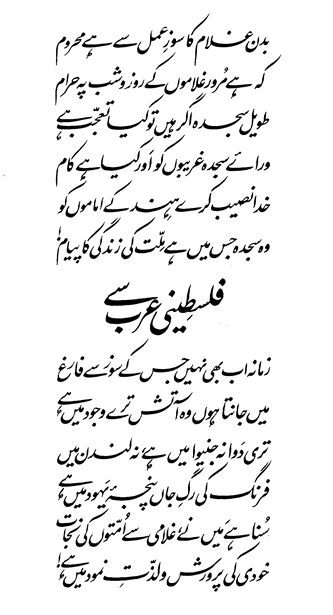 بدن غلام کا سوزِ عمل سے ہے محروم
کہ ہے مُرور غلاموں کے روز و شب پہ حرام
طویل سجدہ اگر ہیں تو کیا تعجّب ہے
ورائے سجدہ غریبوں کو اَور کیا ہے کام
خدا نصیب کرے ہِند کے اماموں کو
وہ سجدہ جس میں ہے مِلّت کی زندگی کا پیام!
فلسطِینی عرب سے
زمانہ اب بھی نہیں جس کے سوز سے فارغ
میں جانتا ہوں وہ آتش ترے وجود میں ہے
تری دَوا نہ جنیوا میں ہے، نہ لندن میں
فرنگ کی رگِ جاں پنجۂ یہود میں ہے
سُنا ہے مَیں نے غلامی سے اُمتّوں کی نجات
خودی کی پرورش و لذّتِ نمود میں ہے!